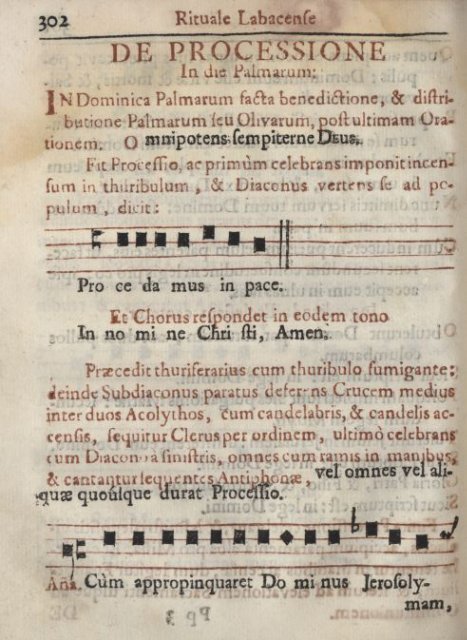 302 Rituale Labacense
DE PROCESSIONE
In die Palmarum:
IN Dominica Palmarum facta benedictione, & distri-
butione Palmarum seu Olivarum, post ultimam Ora-
tionem. Omnipotens sempiterne DEUS.
Fit Processio, ac primùm celebrans imponit incen-
sum in thuribulum, & Diaconus vertens se ad po-
pulum, dicit:
Pro ce da mus in pace.
Et Chorus respondet in eodem tono
In no mi ne Chri sti, Amen.
Præcedit thuriferarius cum thuribulo fumigante:
deinde Subdiaconus paratus deferens Crucem medius
inter duos Acolythos, cum candelabris, & candelis ac-
censis, sequitur Clerus per ordinem, ultimò celebrans
cum Diacono à sinistris, omnes cum ramis in manibus,
& cantantur sequentes Antiphonæ, vel omnes vel ali-
quæ quousque durat Processio.
Aña. Cùm appropinquaret Do mi nus Jerosoly-
Pp 3 mam,